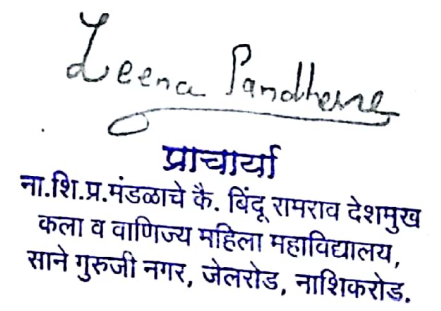 Leena Pandhare
प्राचार्या
ना.शि.प्र.मंडळाचे कै. बिंदू रामराव देशमुख
कला व वाणिज्य महिला महाविद्यालय,
साने गुरुजी नगर, जेलरोड, नाशिकरोड.